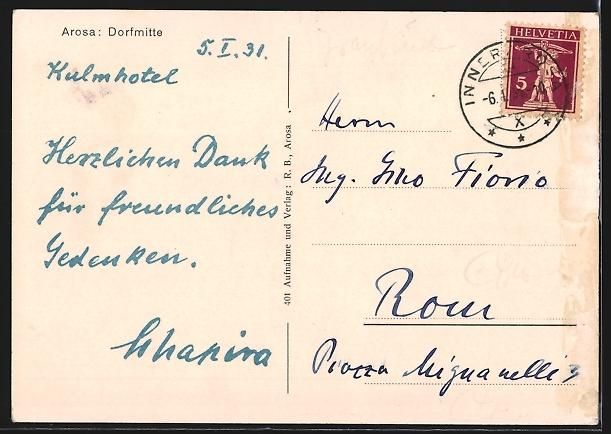 Arosa: Dorfmitte
5. I. 31.
Kulmhotel
Herzlichen Dank
für freundliches
Gedenken.
Schapira
401 Aufnahme und Verlag: R. B., Arosa
HELVETIA
5
INNER
-6.
X
Herrn
Ing. Gino Fiorio
Rom
Piazza Mignanelli 3